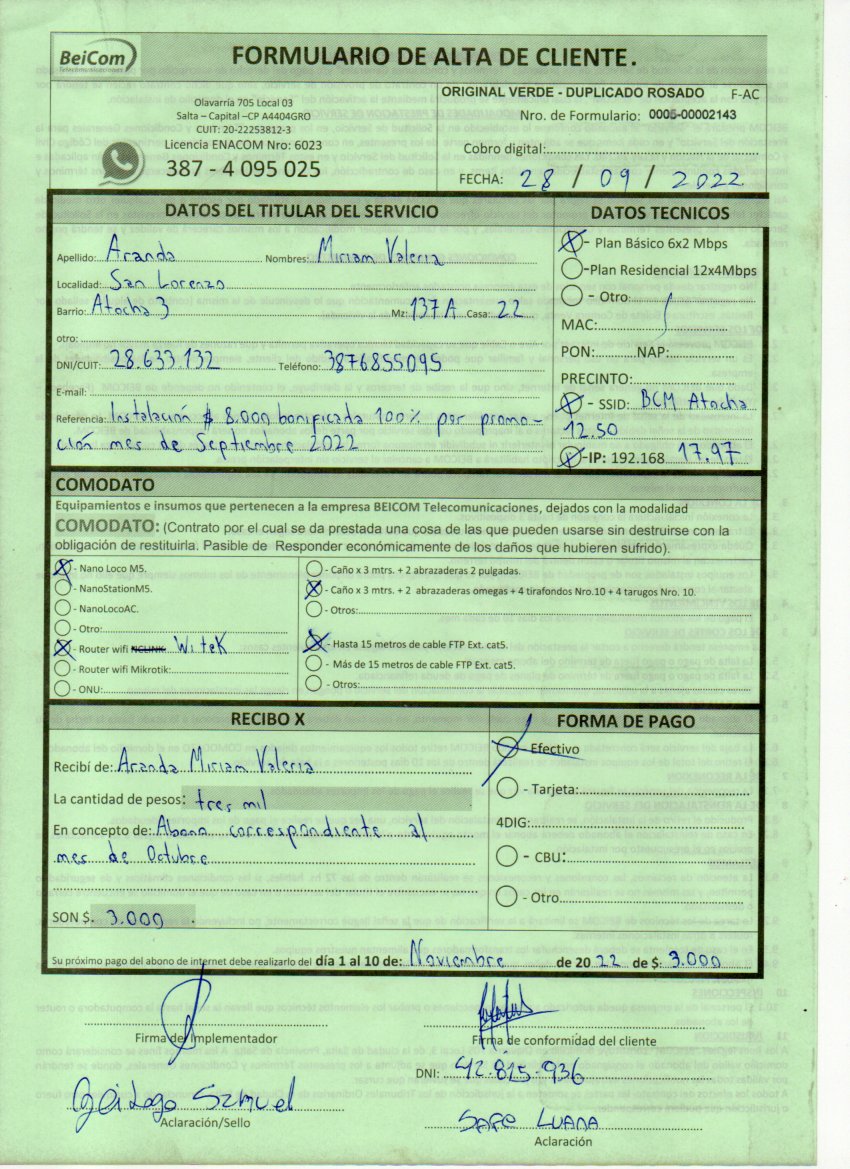 BeiCom
Telecomunicaciones
FORMULARIO DE ALTA DE CLIENTE.
Olavarría 705 Local 03
Salta – Capital –CP A4404GRO
CUIT: 20-22253812-3
Licencia ENACOM Nro: 6023
387 - 4 095 025
ORIGINAL VERDE - DUPLICADO ROSADO F-AC
Nro. de Formulario: 0005-00002143
Cobro digital:
FECHA: 28 / 09 / 2022
DATOS DEL TITULAR DEL SERVICIO
Apellido: Aranda Nombres: Miriam Valeria
Localidad: San Lorenzo
Barrio: Atocha 3 Mz: 137 A Casa: 22
otro:
DNI/CUIT: 28.633.132 Teléfono: 3876855095
E-mail:
Referencia: Instalación $ 8.000 bonificada 100% por promo-
ción mes de Septiembre 2022
DATOS TECNICOS
X - Plan Básico 6x2 Mbps
-Plan Residencial 12x4Mbps
- Otro:
MAC:
PON: NAP:
PRECINTO:
X - SSID: BCM Atocha
12.50
X -IP: 192.168 17.97
COMODATO
Equipamientos e insumos que pertenecen a la empresa BEICOM Telecomunicaciones, dejados con la modalidad
COMODATO: (Contrato por el cual se da prestada una cosa de las que pueden usarse sin destruirse con la
obligación de restituirla. Pasible de Responder económicamente de los daños que hubieren sufrido).
X - Nano Loco M5.
- NanoStationM5.
- NanoLocoAC.
- Otro:
X - Router wifi NCLINK Witek
- Router wifi Mikrotik:
- ONU:
- Caño x 3 mtrs. + 2 abrazaderas 2 pulgadas.
X - Caño x 3 mtrs. + 2 abrazaderas omegas + 4 tirafondos Nro.10 + 4 tarugos Nro. 10.
- Otros:
X - Hasta 15 metros de cable FTP Ext. cat5.
- Más de 15 metros de cable FTP Ext. cat5.
- Otros:
RECIBO X
Recibí de: Aranda Miriam Valeria
La cantidad de pesos: tres mil
En concepto de: Abono correspondiente al
mes de Octubre
SON $. 3.000
FORMA DE PAGO
X - Efectivo
- Tarjeta:
4DIG:
- CBU:
- Otro
Su próximo pago del abono de internet debe realizarlo del día 1 al 10 de: Noviembre de 20 22 de $: 3.000
Firma del Implementador
Firma de conformidad del cliente
DNI: 42.825-936
Samuel
Aclaración/Sello
Luana
Aclaración